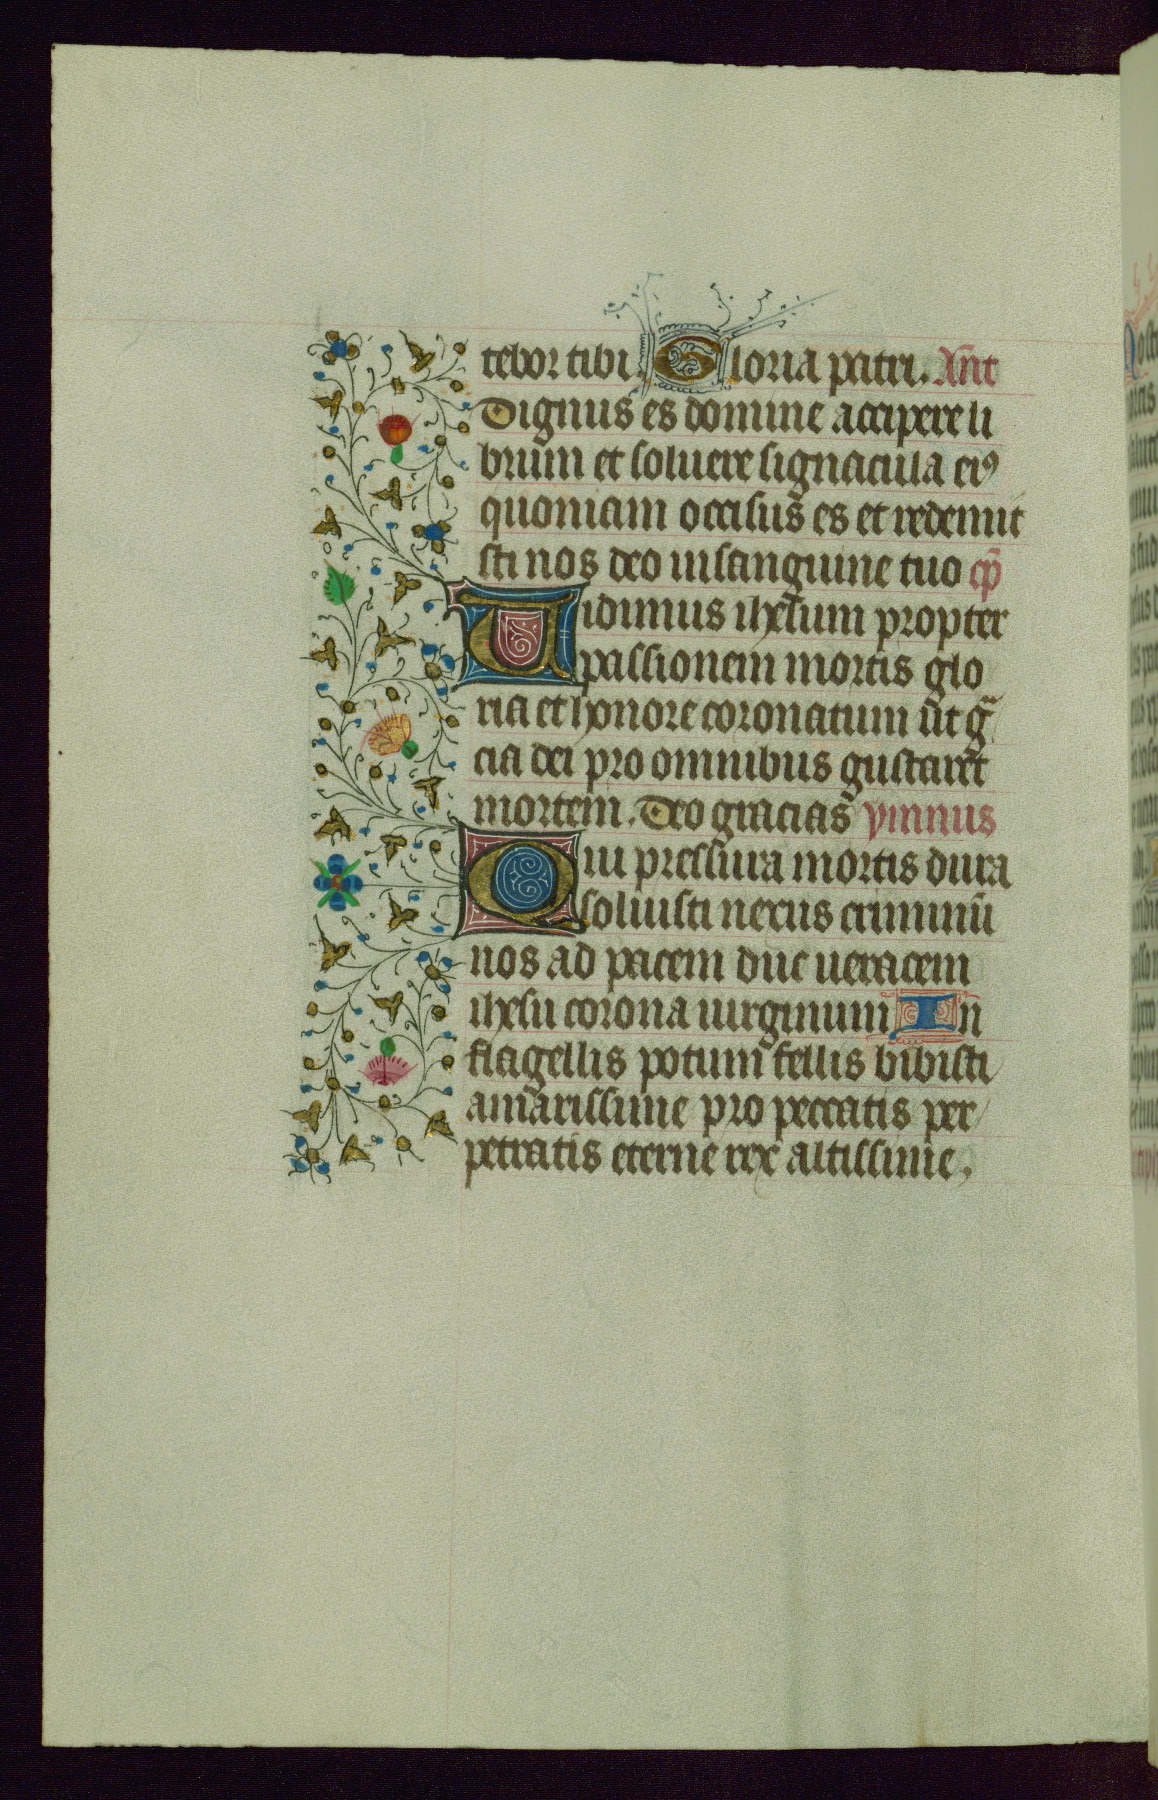 tebor tibi. Gloria patri. Ant
Dignus es domine accipere li
brum et soluere signacula ei⁹
quoniam occisus es et redemit
sti nos deo in sanguine tuo cp̄
Uidimus ihesum propter
passionem mortis glo
ria et honore coronatum ut gͣ
cia dei pro omnibus gustaret
mortem. Deo gracias ymnus
Qui pressura mortis dura
soluisti nexus criminū
nos ad pacem duc ueracem
ihesu corona uirginum In
flagellis potum fellis bibisti
amarissime pro peccatis per
petratis eterne rex altissime.